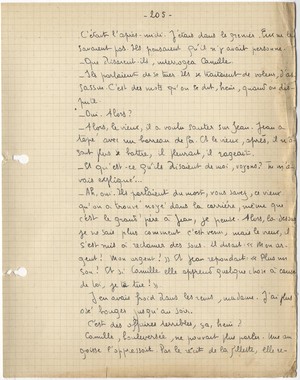 - 205 -
C'était l'après-midi. J'étais dans le grenier. Eux ne le
savaient pas. Ils pensaient qu'il n'y avait personne.
- Que disaient-ils, interrogea Camille.
- Ils parlaient de se tuer. Ils se traitaient de voleurs, d'as
sassin. C'est des mots qu'on se dit, hein, quand on dis-
pute.
- Oui. Alors ?
- Alors, le vieux, il a voulu sauter sur Jean. Jean a
tapé avec un barreau de fer. Et le vieux, après, il n'o
sait plus se battre, il pleurait, il rageait.
- Et qu'est-ce qu'ils disaient de moi, voyons ? Tu m'a-
vais expliqué...
- Ah, oui. Ils parlaient du mort, vous savez, ce vieux
qu'on a trouvé noyé dans la carrière, même que
c'est le grand'père à Jean, je pense. Alors, là-dessus
je ne sais plus comment c'est venu, mais le vieux, il
s'est mis à réclamer des sous. Il disait « Mon ar-
gent ! Mon argent ! » Et Jean répondait : « Plus un
sou ! Et si Camille elle apprend quelque chose à cause
de toi, je te tue ! »
J'en avais froid dans les reins, madame. J'ai plus
osé bouger jusqu'au soir.
C'est des affaires terribles, ça, hein ?
Camille, bouleversée, ne pouvait plus parler. Une an
goisse l'oppressait. Par le récit de la fillette, elle re-